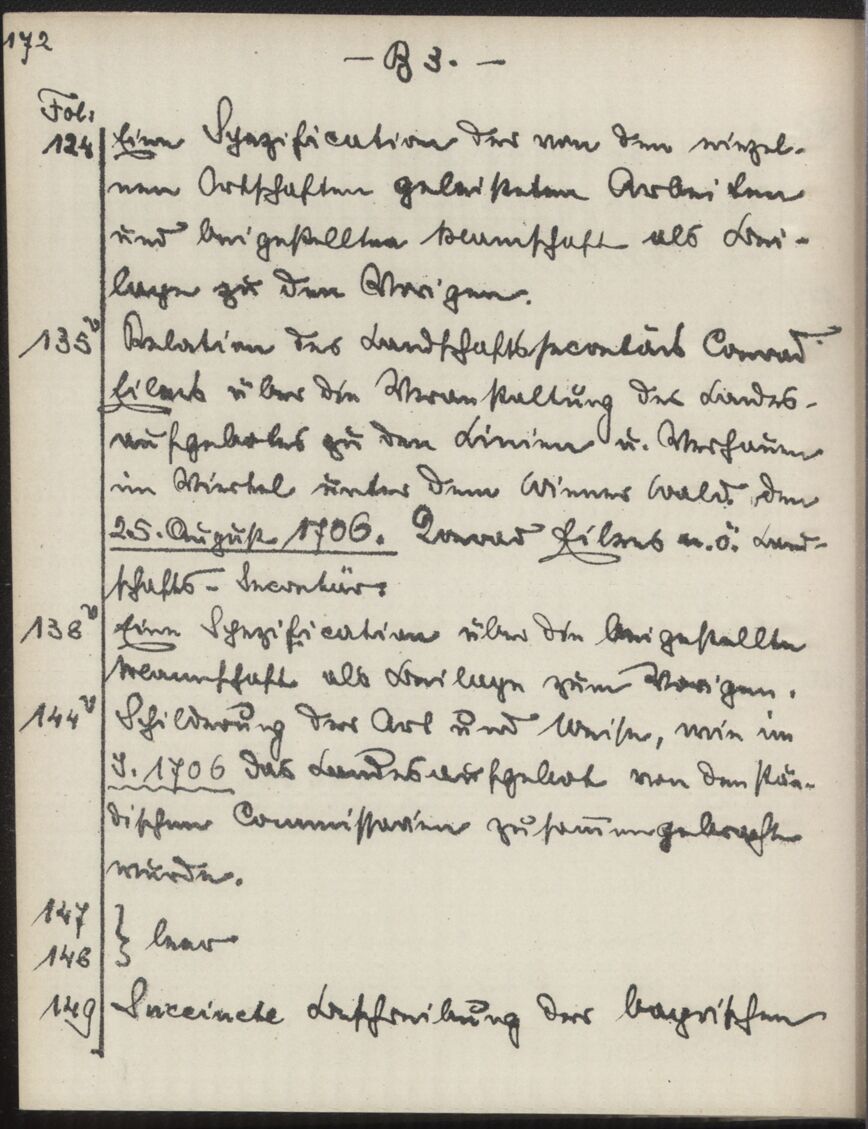 172
— B 3. —
Fol:
124 Eine Spezification der von den einzel-
nen Ortschaften geleisteten Arbeiten
und beigestellten Mannschaft als Bei-
lage zu den Vorigen.
135v Relation des Landschaftssecretärs Conrad
Eilers über die Veranstaltung des Landes-
aufgebotes zu den Linien u. Verhauen
im Viertel unter dem Wiener Wald den
25. August 1706. Konrad Eilers n.ö. Land-
schafts-Secretär.
138v Eine Spezification über die beigestellte
Mannschaft als Beilage zum Vorigen.
144v Schilderung der Art und Weise, wie im
J. 1706 das Landesaufgebot von den stän-
dischen Commissarien zusam̄engebracht
wurde.
147
148 } leer
149 Succincte Beschreibung der bayrischen